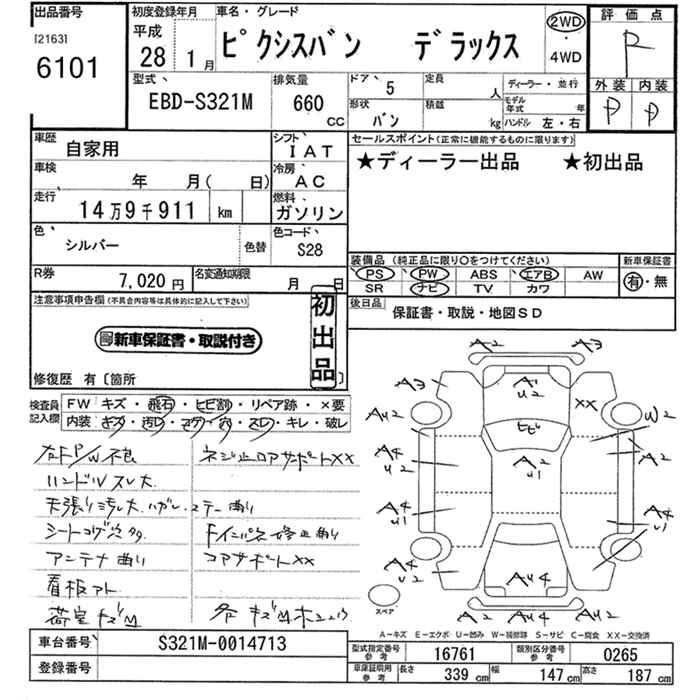 出品番号
[2163]
6101
初度登録年月
平成
28 1月
車名・グレード
ピクシスバン デラックス
2WD
・
4WD
評価点
R
外装 内装
D D
型式
EBD-S321M
排気量
660
CC
ドア 5
定員 人
形状 バン
積載 kg
ディーラー・並行
モデル年式 年
ハンドル 左・右
車歴
自家用
シフト
IAT
車検
年 月( 日)
冷房
AC
走行
14万9千911 km
燃料
ガソリン
色
シルバー
色替
色コード
S28
R券
7,020円
名変通知期限
月 日
セールスポイント(正常に機能するものに限ります)
★ディーラー出品 ★初出品
装備品(純正品に限り○をつけてください)
PS PW ABS エアB AW
SR ナビ TV カワ
新車保証書
有・無
後日品
保証書・取説・地図SD
注意事項申告欄(不具合内容等は具体的に記入して下さい)
新車保証書・取説付き
初出品
修復歴 有〔箇所 〕
検査員記入欄
FW キズ・飛石・ヒビ割・リペア跡・×要
内装 キズ・汚レ・コゲ・穴・スレ・キレ・破レ
ハンドルスレ大
シートコゲ穴
アンテナ曲り
看板アト
荷室キズM
コアサポートXX
A2
A3 A2 A3
XX
AU2 ヒビ W2
A4 A2 A2
U2 U1
A4 A4
U1 U1
A4
U2 AU4
スペア
A2 AU4 AU2
A-キズ E-エクボ U-凹み W-補修跡 S-サビ C-腐食 XX-交換済
車台番号
S321M-0014713
登録番号
型式指定番号
参考
16761
類別区分番号
参考
0265
車庫証取用
参考
長さ 339 cm
幅 147 cm
高さ 187 cm